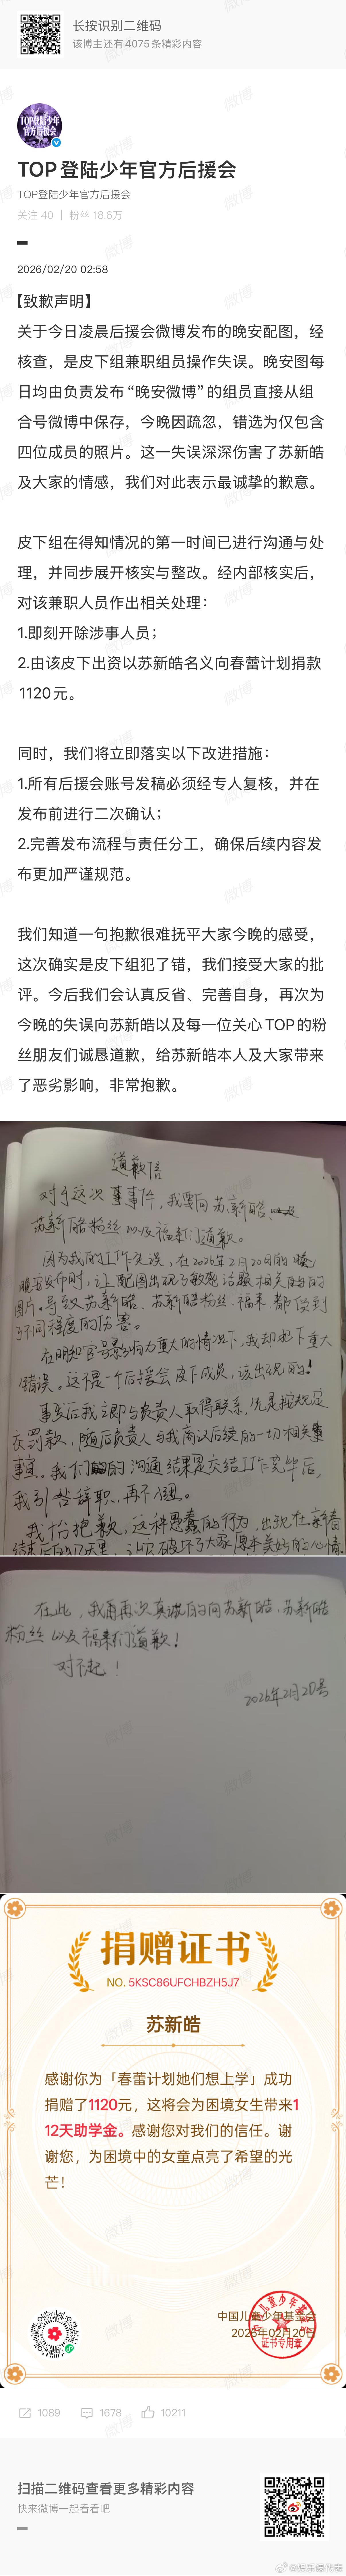 长按识别二维码
该博主还有4075条精彩内容
TOP登陆少年
官方后援会
TOP登陆少年官方后援会
TOP登陆少年官方后援会
关注 40 | 粉丝 18.6万
2026/02/20 02:58
【致歉声明】
关于今日凌晨后援会微博发布的晚安配图，经
核查，是皮下组兼职组员操作失误。晚安图每
日均由负责发布“晚安微博”的组员直接从组
合号微博中保存，今晚因疏忽，错选为仅包含
四位成员的照片。这一失误深深伤害了苏新皓
及大家的情感，我们对此表示最诚挚的歉意。
皮下组在得知情况的第一时间已进行沟通与处
理，并同步展开核实与整改。经内部核实后，
对该兼职人员作出相关处理：
1.即刻开除涉事人员；
2.由该皮下出资以苏新皓名义向春蕾计划捐款
1120元。
同时，我们将立即落实以下改进措施：
1.所有后援会账号发稿必须经专人复核，并在
发布前进行二次确认；
2.完善发布流程与责任分工，确保后续内容发
布更加严谨规范。
我们知道一句抱歉很难抚平大家今晚的感受，
这次确实是皮下组犯了错，我们接受大家的批
评。今后我们会认真反省、完善自身，再次为
今晚的失误向苏新皓以及每一位关心TOP的粉
丝朋友们诚恳道歉，给苏新皓本人及大家带来
了恶劣影响，非常抱歉。
道歉信
对于这次事件，我要向苏新皓、
苏新皓粉丝以及福来们道歉。
因为我的工作失误，在2026年2月20日的晚
安发布时，让配图出现了敏感话题相关的
图片。导致苏新皓、苏新皓粉丝、福来都受到
了不同程度的伤害。
在明知官号影响力重大的情况下，我却犯下重大
错误。这不是一个后援会皮下成员，该出现的！
事发后我立即与负责人取得联系，先是按规定
交罚款，随后负责人与我商议后续的一切相关
事宜，我们的沟通结果是交结工作完毕后，
我引咎辞职，再不入圈。
我十分抱歉，这种愚蠢的行为，出现在新春
结束后的几天里，让此破坏了大家原本美好的心情
在此，我再再次真诚的向苏新皓、苏新皓
粉丝以及福来们道歉！
对不起！
2026年2月20号
捐赠证书
NO. 5KSC86UFCHBZH5J7
苏新皓
感谢你为「春蕾计划她们想上学」成功
捐赠了1120元，这将会为困境女生带来1
12天助学金。感谢您对我们的信任。谢
谢您，为困境中的女童点亮了希望的光
芒！
中国儿童少年基金会
2026年02月20日
证书专用章
1089 1678 10211
扫描二维码查看更多精彩内容
快来微博一起看看吧